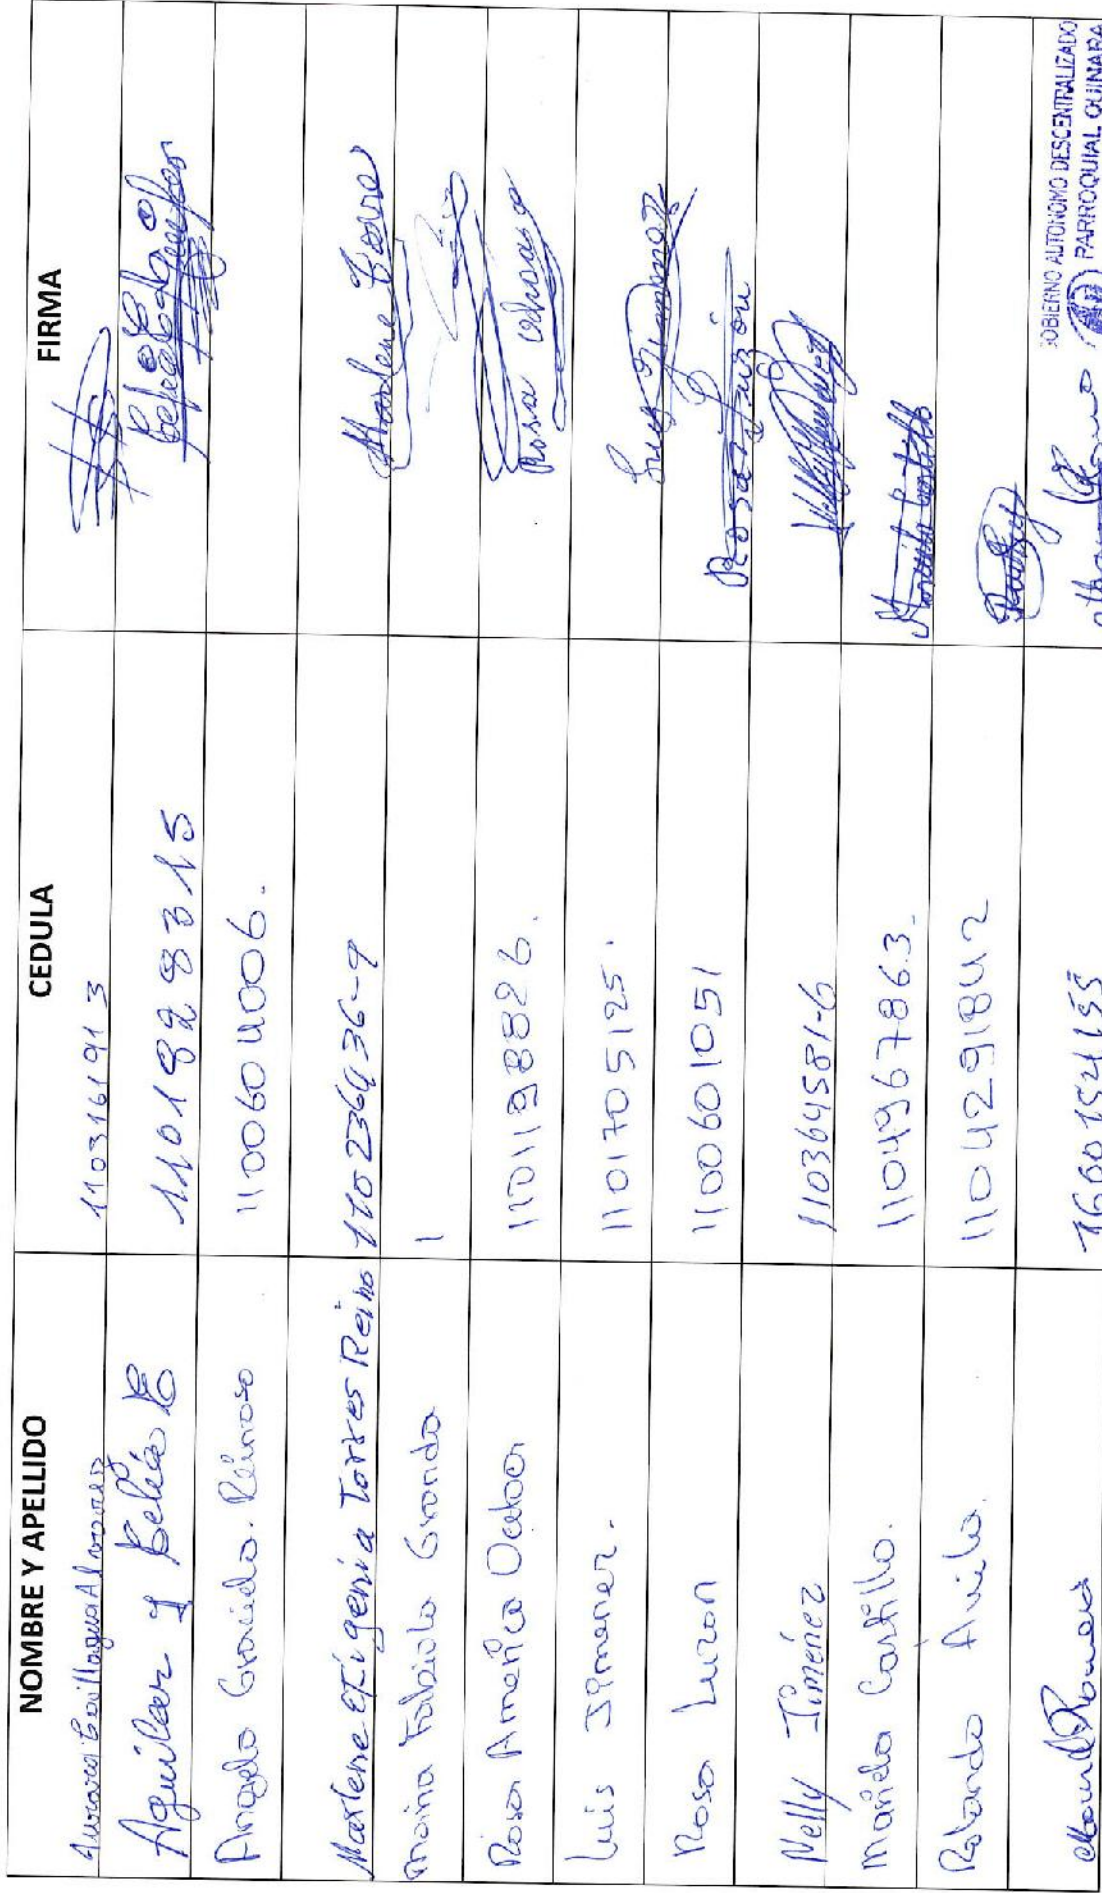 NOMBRE Y APELLIDO CEDULA FIRMA
Aurora 110316191 3
Aguilar y Belia E 1101828315
Angela Graciela Reinoso 1100604006.
Marlene Efigenia Torres Reino 110236936-9 Marlene Torre
Maina Fabiola Granda 1
Rosa America Ochoa 1101198826. Rosa Ochoa
Luis Jimenez. 1101705125. Luis Jimenez
Rosa Luzon 1100601051 Rosa Luzon
Nelly Jiménez 110364581-6
Mariela Castillo. 1104967863. Mariela Castillo
Rolando Avila. 1104291842
Romero 1600154155
GOBIERNO AUTONOMO DESCENTRALIZADO
PARROQUIAL QUINARA